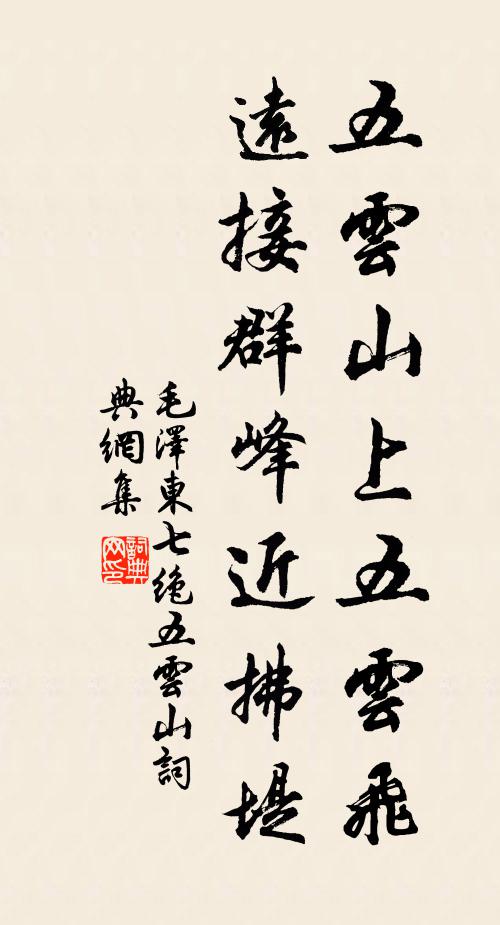 五雲山上五雲飛
遠接群峰近拂堤
毛澤東七绝五雲山詞
典網集
詞典网印